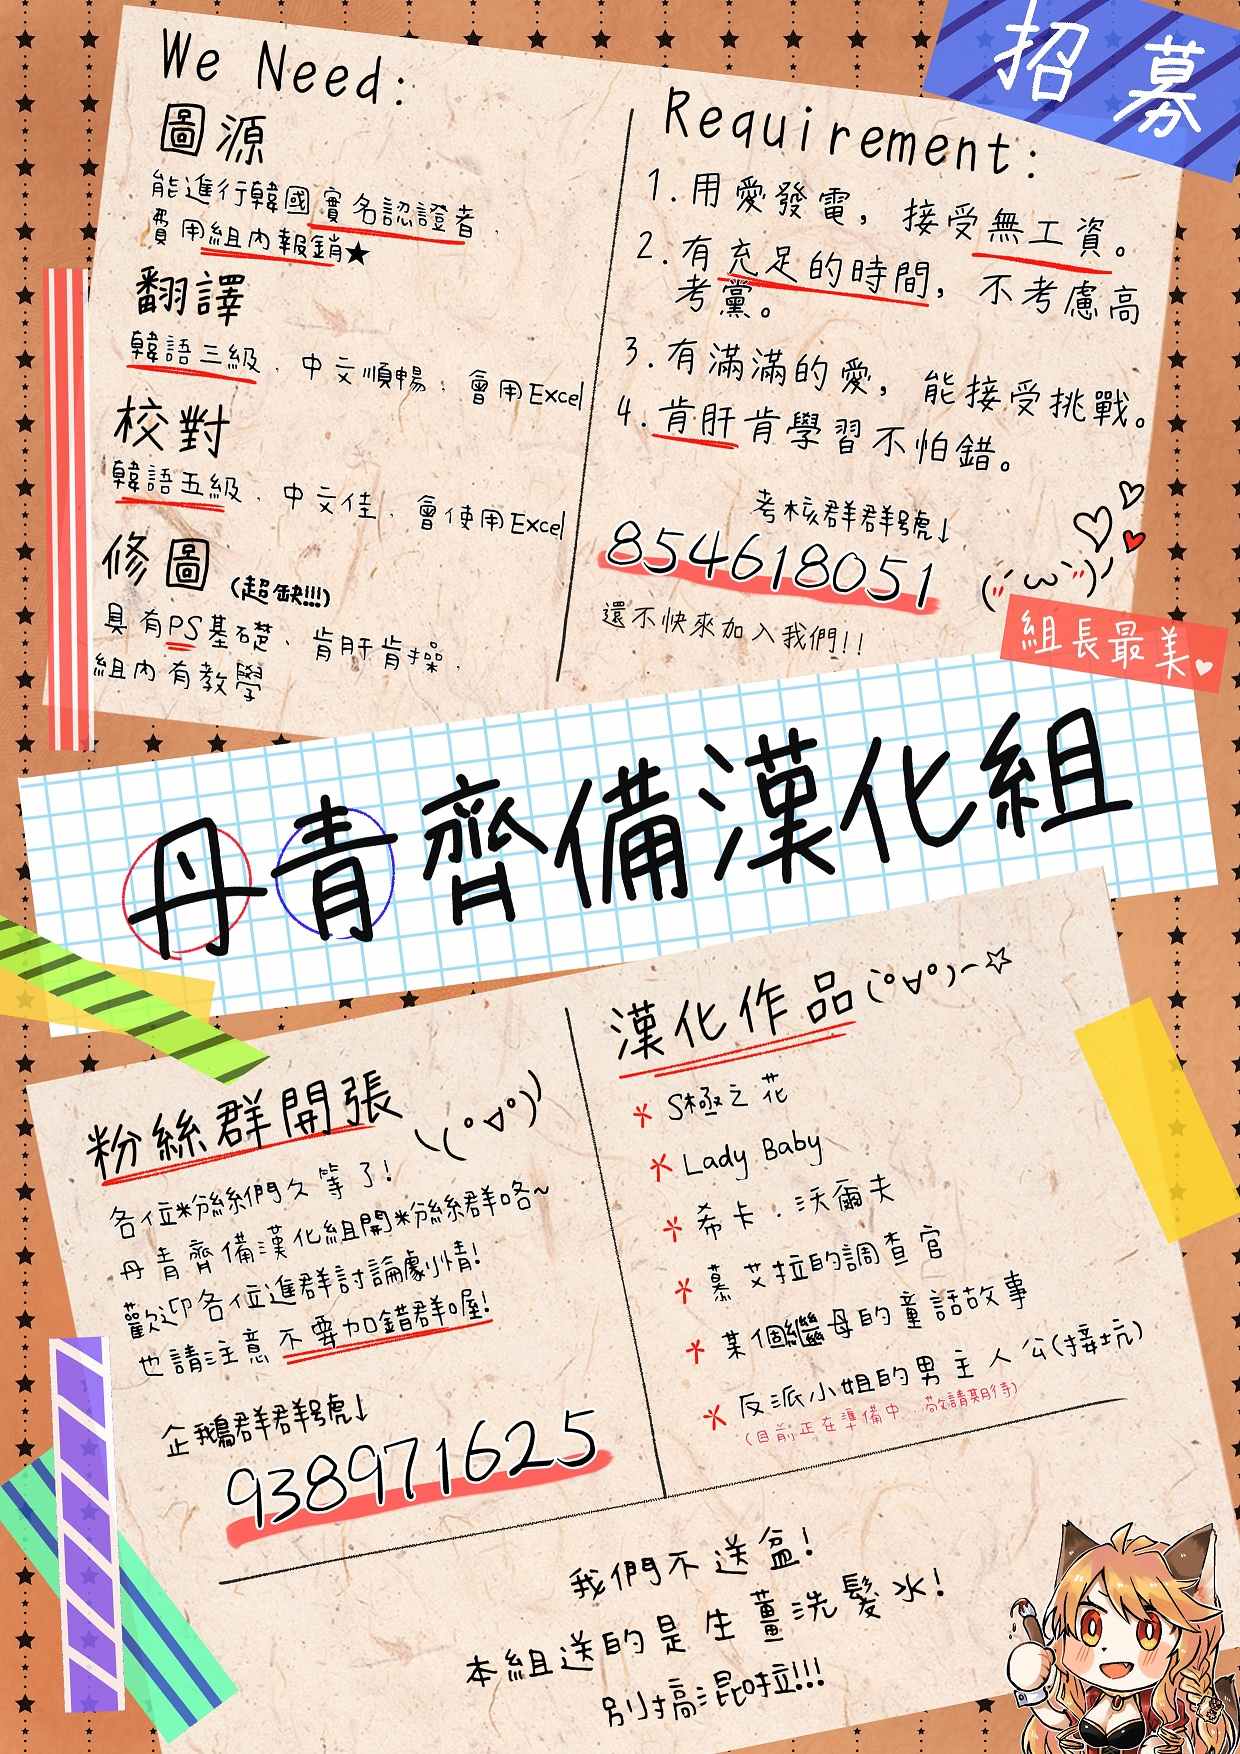 招募
We Need:
圖源
能進行韓國實名認證者、
費用組內報銷★
翻譯
韓語三級、中文順暢、會用Excel
校對
韓語五級、中文佳、會使用Excel
修圖(超缺!!!)
具有PS基礎、肯肝肯操、
組內有教學
Requirement:
1.用愛發電，接受無工資。
2.有充足的時間，不考慮高
考黨。
3.有滿滿的愛，能接受挑戰。
4.肯肝肯學習不怕錯。
考核群群號↓
854618051
還不快來加入我們!!
組長最美
丹青齊備漢化組
粉絲群開張
各位粉絲們久等了!
丹青齊備漢化組開粉絲群咯~
歡迎各位進群討論劇情!
也請注意不要加錯群喔!
企鵝群群號↓
938971625
漢化作品
S極之花
Lady Baby
希卡．沃爾夫
慕艾拉的調查官
某個繼母的童話故事
反派小姐的男主人公(接坑)
(目前正在準備中、敬請期待)
我們不送盆!
本組送的是生薑洗髮水!
別搞混啦!!!